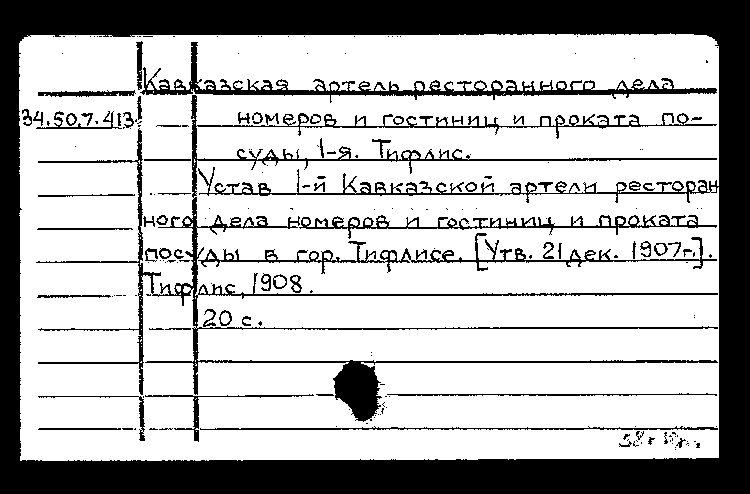 Кавказская артель ресторанного дела
34.50.7.413 номеров и гостиниц и проката по-
суды, 1-я. Тифлис.
Устав 1-й Кавказской артели ресторан
ного дела номеров и гостиниц и проката
посуды в гор. Тифлисе. [Утв. 21 дек. 1907г.].
Тифлис, 1908.
20 с.